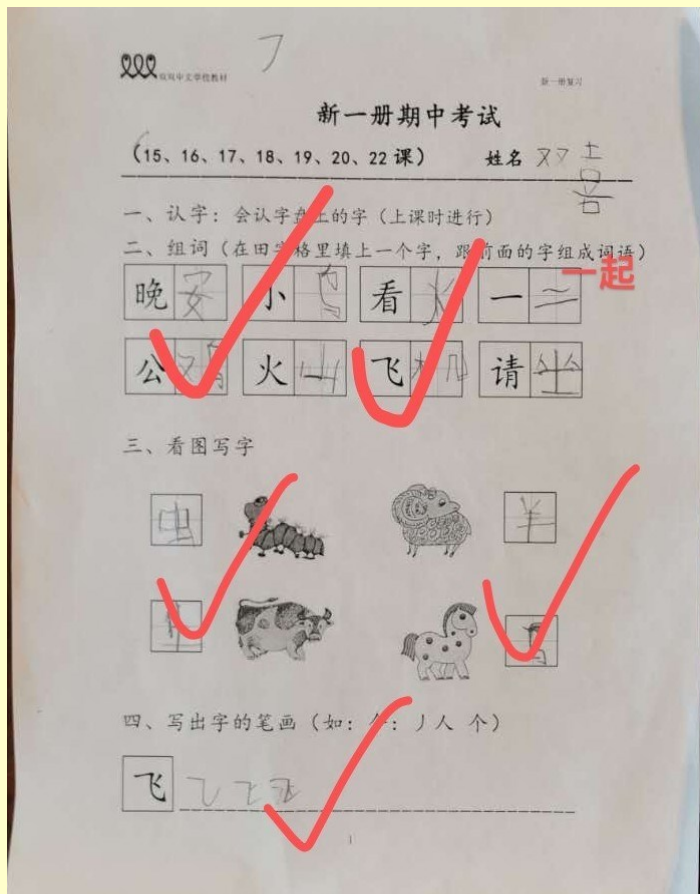 双双中文学校教材 新一册复习
新一册期中考试
(15、16、17、18、19、20、22 课) 姓名 双双
一、认字：会认字盘上的字（上课时进行）
二、组词（在田字格里填上一个字，跟前面的字组成词语）
一起
晚安 小鸟 看 一二
公鸡 火山 飞机 请坐
三、看图写字
虫 羊
牛 马
四、写出字的笔画（如：个：丿人 个）
飞
1